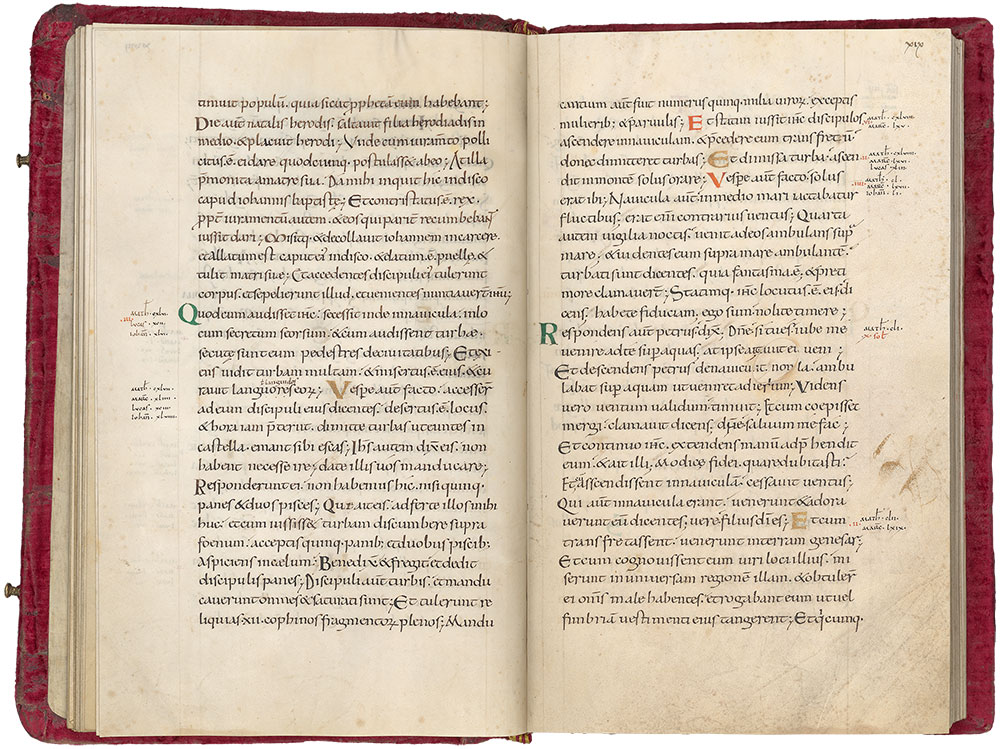 timuit populū. quia sicut pphetam eum habebant;
Die aut̄ natalis herodis. saltavit filia herodiadis in
medio. & placuit herodi; Unde cum iuramto polli
citus ē. ei dare quodcunq; postulass& abeo; Atilla
p̄monita amatre sua. Da mihi inquit hic indisco
caput iohannis baptiste; Et contristatus ē. rex.
ppt̄ iuramentū autem. & eos qui parit̄ recumbebant
iussit dari; Misitq; & decollavit iohannem incarcere.
et allatum est caput ei indisco. & datum ē. puelle, &
tulit matri sue; Et accedentes discipuli ei tulerunt
corpus. et sepelierunt illud. et venientes nuntiaverūt ihu;
math̄. cxlvi.
lucas. xcii.
Quod cum audisset ihc̄. secessit inde innavicula. inlo
cum secretum seorsum. & cum audissent turbae.
secute sunt eum pedestres decivitatibus; Et exi
ens vidit turbam multam. & misertus ē. eis. & cu
ravit languores eorꝝ;
math̄. cxlvii.
marc̄. xliiii.
lucas. xciii.
iohan̄. xlviiii.
Vespe aut̄ facto. accesser̄
ad eum discipuli eius dicentes. desertus ē. locus.
& hora iam p̄terit. dimitte turbas ut euntes in
castella. emant sibi escas; Ihs autem dix̄ eis. non
habent necesse ire; date illis vos manducare;
Responderunt ei. non habemus hic. nisi quinq.
panes & duos pisces; Qui ait eis. adferte illos mihi
huc. et cum iussiss& turbam discumbere supra
foenum. acceptis quinq; panib; et duobus piscib;
Aspiciens incelum; Benedix̄ & fregit et dedit
discipulis panes; Discipuli aut̄ turbis. et mandu
caverunt omnes & saturati sunt; Et tulerunt re
liquias. xii. cophinos fragmentorꝝ plenos; Mandu
xix
cantium aut̄ fuit numerus quinq; milia virorꝝ. exceptis
mulierib; & parvulis; Et statim iussit ihc̄ discipulos
math̄. cxlviii.
marc̄. lxv.
ascendere innaviculam. & p̄cedere eum trans fretū
donec dimitteret turbas; Et dimissa turba. ascen
math̄. cxlviiii.
marc̄. lxvi.
lucas. xliii.
dit inmontē solus orare; Vespe aut̄ facto. solus
math̄. cl.
marc̄. lxvii.
iohan̄. li.
erat ibi; Navicula aut̄ inmedio mari iactabatur
fluctibus. erat enī contrarius ventus; Quarta
autem vigilia noctis. venit ad eos ambulans sup̄
mare. & videntes eum supra mare ambulantē.
turbati sunt dicentes. quia fantasma ē. & p̄ti
more clamaverūt; Statimq; ihc̄ locutus ē. eis di
cens. habete fiduciam. ego sum. nolite timere;
Respondens aut̄ petrus. dix̄. Dn̄e. si tu es. iube me
math̄. cli.
x. sol̄.
venire ad te sup aquas. at ipse ait. veni;
Et descendens petrus denavicula. ambu
labat sup aquam ut veniret ad ihm; Videns
vero ventum validum timuit; Et cum coepisset
mergi. clamavit dicens. dn̄e salvum me fac;
Et continuo ihc̄. extendens manū adp̄hendit
eum. & ait illi. Modice fidei. quare dubitasti;
Et cū ascendissent innaviculā. cessavit ventus;
Qui aut̄ innavicula erant. venerunt & adora
verunt eū dicentes. vere filius dī es; Et cum
math̄. clii.
marc̄. lxix.
transfretassent. venerunt interram genesar;
Et cum cognovissent eum viri loci illius. mi
serunt in universam regionem illam. & obtuler̄
ei omn̄s male habentes. et rogabant eum ut vel
fimbriā vestimenti eius tangerent; Et q̄cumq;